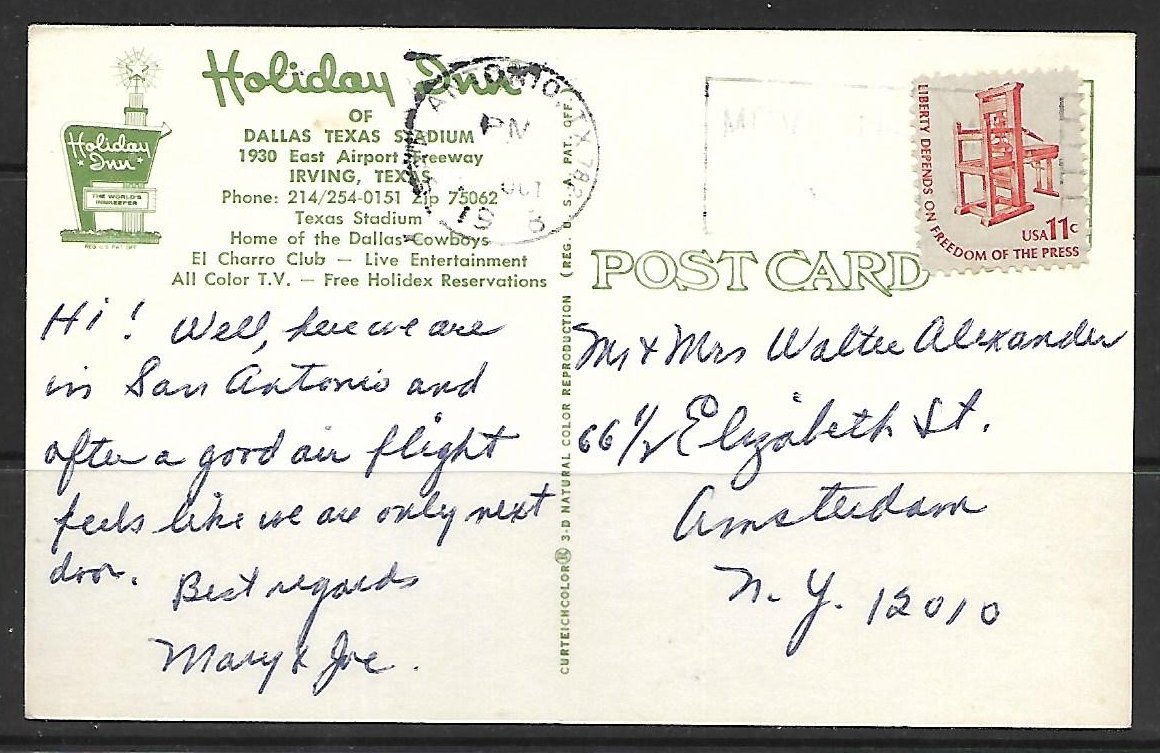 Holiday Inn
OF
DALLAS TEXAS STADIUM
1930 East Airport Freeway
IRVING, TEXAS
Phone: 214/254-0151 Zip 75062
Texas Stadium
Home of the Dallas Cowboys
El Charro Club — Live Entertainment
All Color T.V. — Free Holidex Reservations
Holiday Inn
THE WORLD'S
INNKEEPER
REG. U.S. PAT. OFF.
Hi! Well, here we are
in San Antonio and
after a good air flight
feels like we are only next
door.
Best regards
Mary & Joe.
CURTEICHCOLOR® 3-D NATURAL COLOR REPRODUCTION (REG. U. S. PAT. OFF.
ANTONIO, TX 782
PM
OCT
19 8
LIBERTY DEPENDS ON FREEDOM OF THE PRESS
USA 11c
POST CARD
Mr & Mrs Walter Alexander
66 1/2 Elizabeth St.
Amsterdam
N. Y. 12010